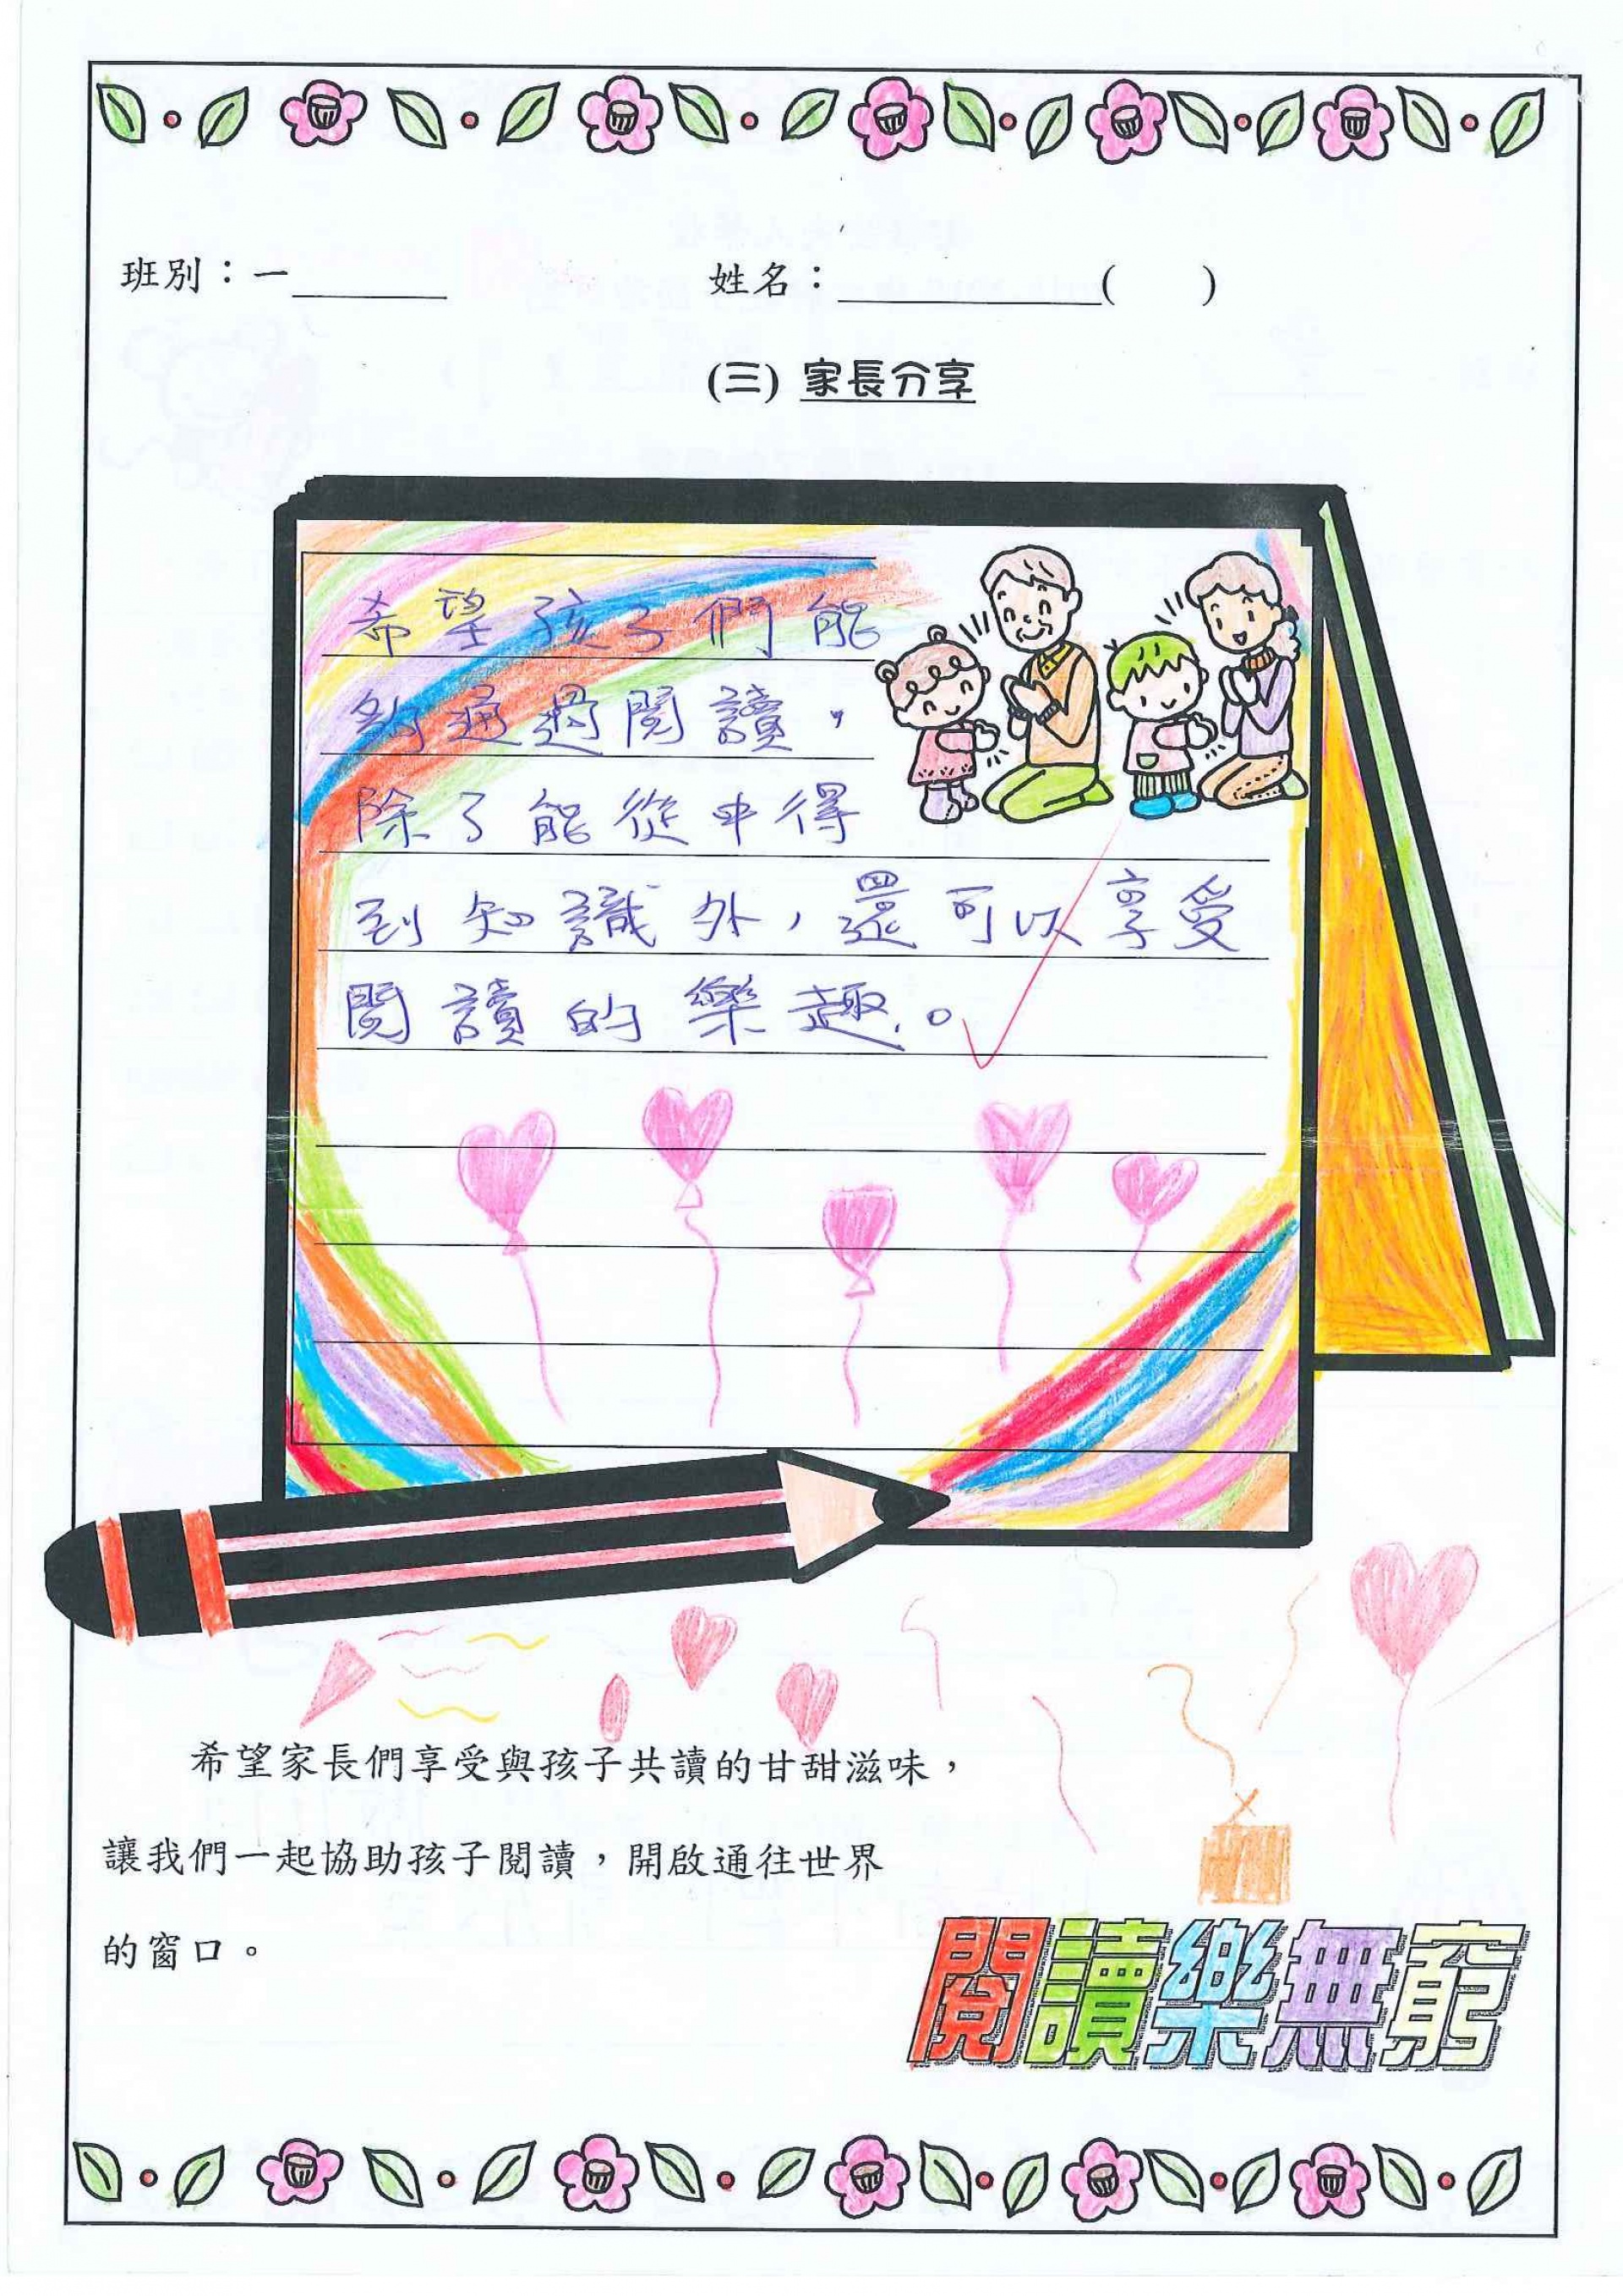 班別：一______ 姓名：__________(　　)
(三) 家長分享
希望孩子們能
夠通過閱讀，
除了能從中得
到知識外，還可以享受
閱讀的樂趣。
希望家長們享受與孩子共讀的甘甜滋味，
讓我們一起協助孩子閱讀，開啟通往世界
的窗口。
閱讀樂無窮